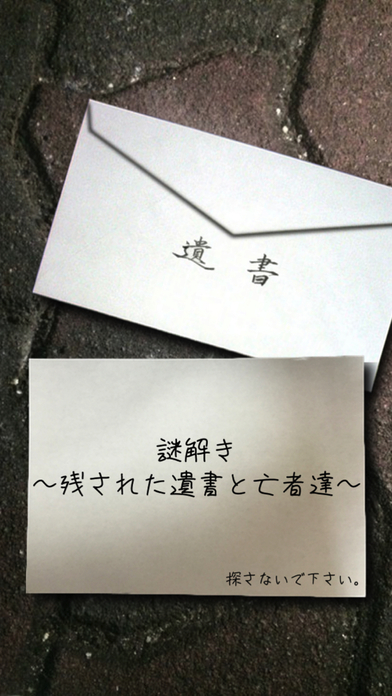 遺書
謎解き
〜残された遺書と亡者達〜
探さないで下さい。